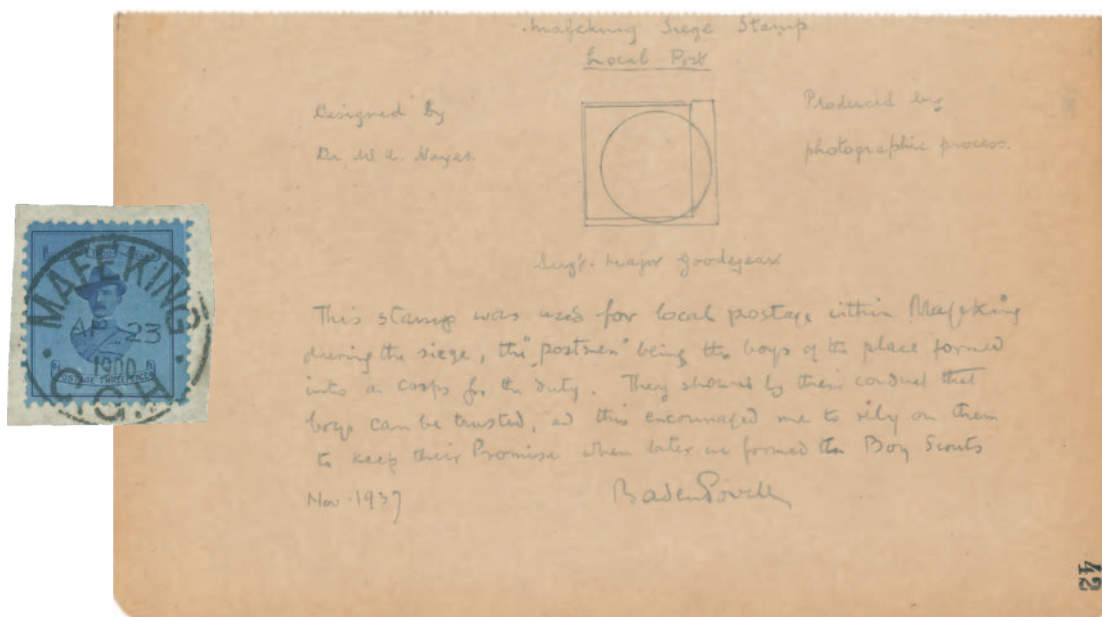 Mafeking Siege Stamp
Local Post
Designed by
Dr. W. A. Hayes.
Produced by
photographic process.
Sergt. Major Goodyear
This stamp was used for local postage within Mafeking
during the siege, the "postmen" being the boys of the place formed
into a corps for the duty. They showed by their conduct that
boys can be trusted, and this encouraged me to rely on them
to keep their Promise when later we formed the Boy Scouts
Nov. 1937
Baden Powell
42
MAFEKING
AP 23
1900
C.G.H.
POSTAGE THREEPENCE